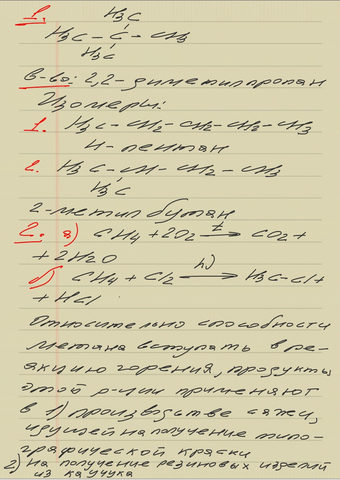 1. H3C
H3C - C - CH3
H3C
В-во: 2,2-диметилпропан
Изомеры:
1. H3C - CH2 - CH2 - CH2 - CH3
н-пентан
2. H3C - CH - CH2 - CH3
H3C
2-метилбутан
2. а) CH4 + 2O2 t→ CO2 +
+ 2H2O
б) CH4 + Cl2 hν→ H3C-Cl +
+ HCl
Относительно способности
метана вступать в ре-
акцию горения, продукты
этой р-ии применяют
в 1) производстве сажи,
идущей на получение типо-
графической краски
2) на получение резиновых изделий
из каучука